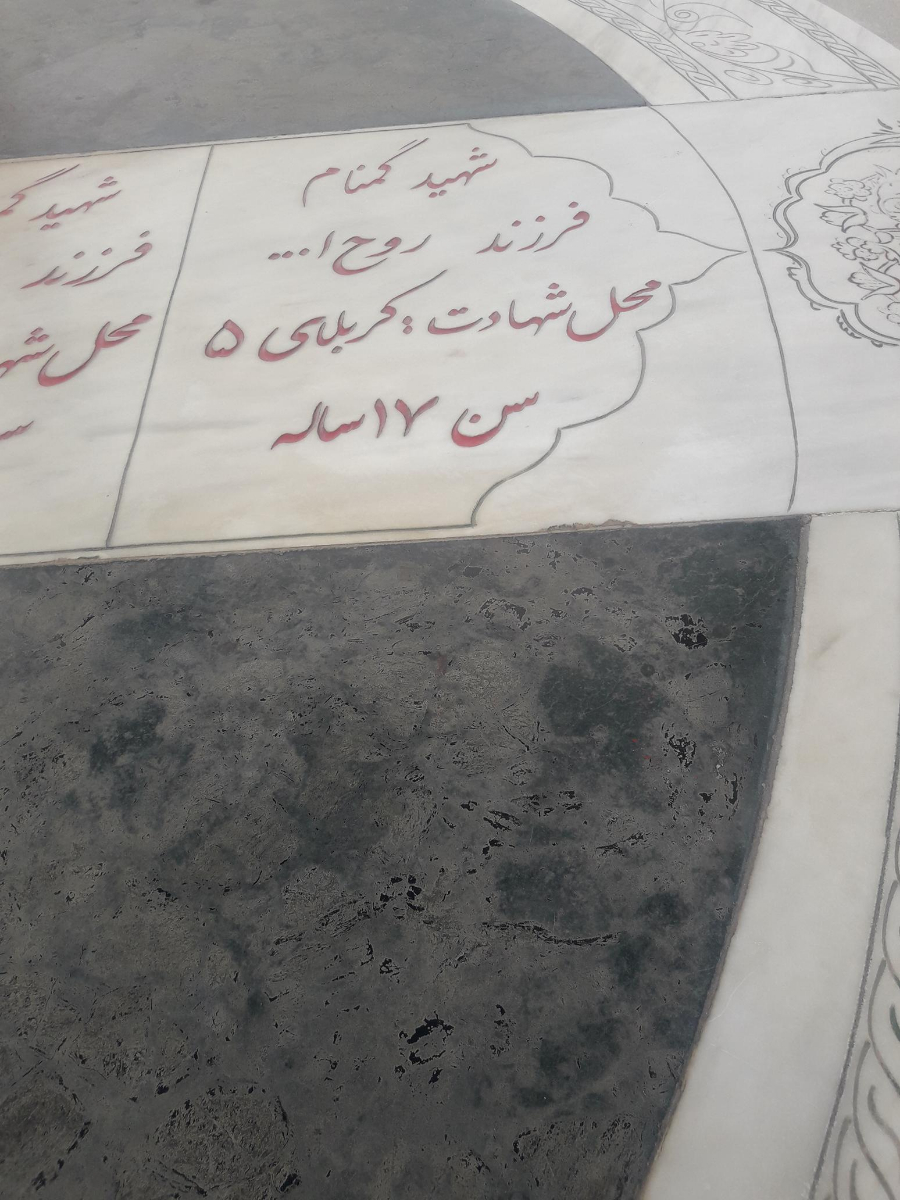 شهید گمنام
فرزند روح ا...
محل شهادت : کربلای ۵
سن ۱۷ ساله
شهید
فرزند
محل